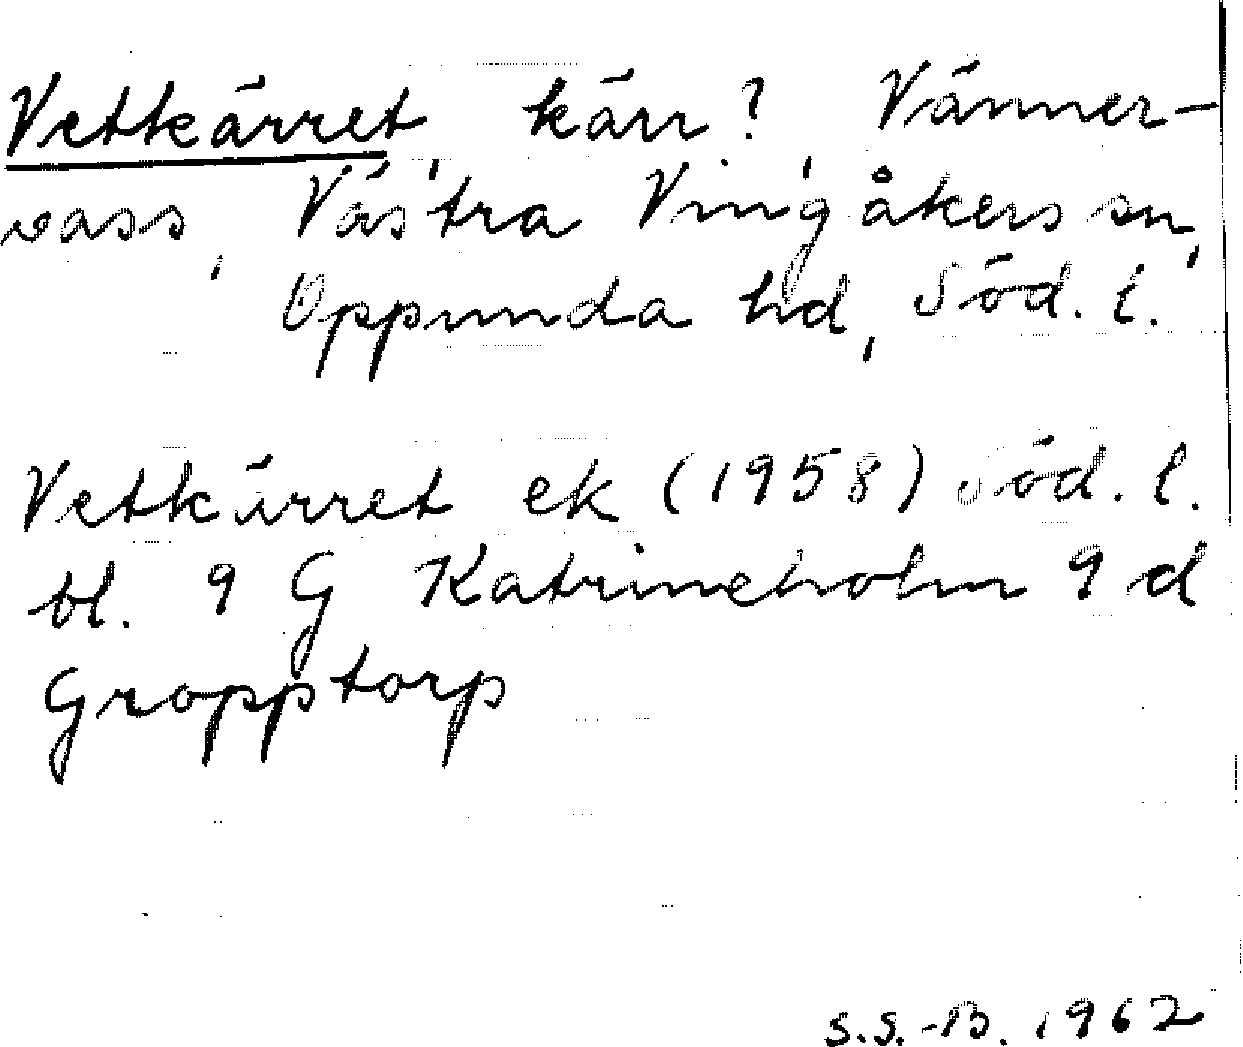 Vetkärret, kärr? Vänner-
vass, Västra Vingåkers sn,
Oppunda hd, Söd. l.
Vetkärret ek (1958) Söd. l.
bl. 9 G Katrineholm 9 d
Gropptorp
S.S.-B. 1962